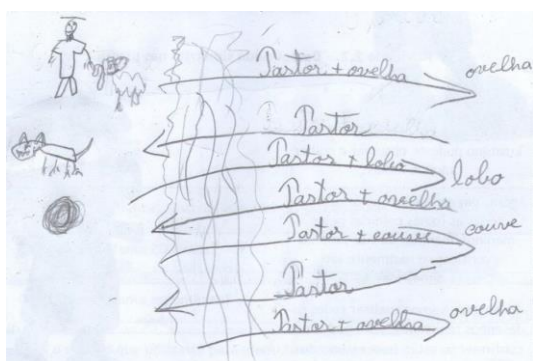 Pastor + ovelha ovelha
Pastor
Pastor + lobo lobo
Pastor + ovelha
Pastor + couve couve
Pastor
Pastor + ovelha ovelha